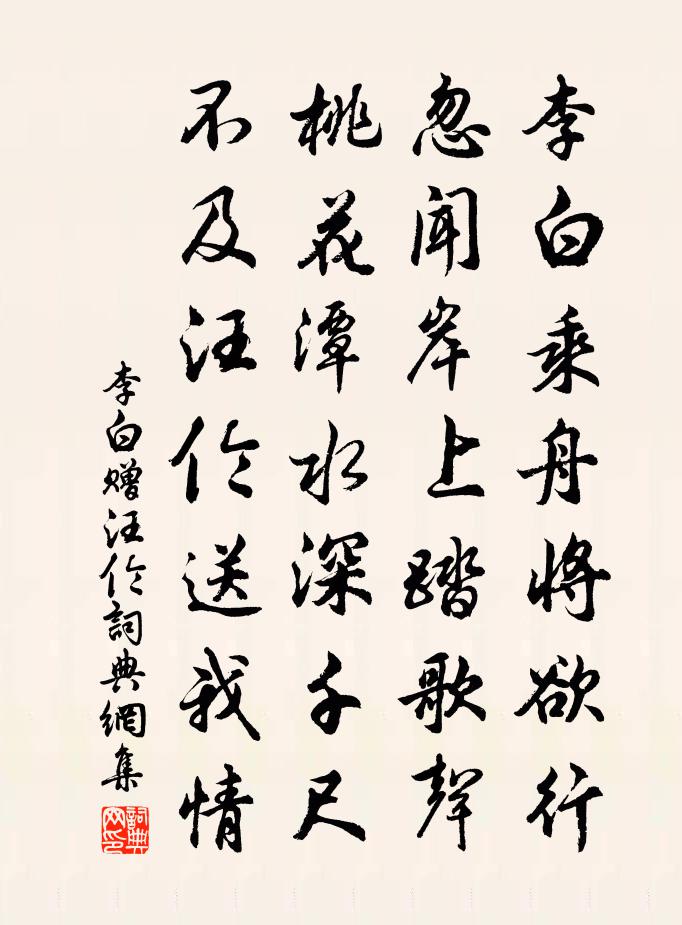 李白乘舟將欲行
忽聞岸上踏歌聲
桃花潭水深千尺
不及汪伦送我情
李白赠汪伦詞典網集
詞典網印